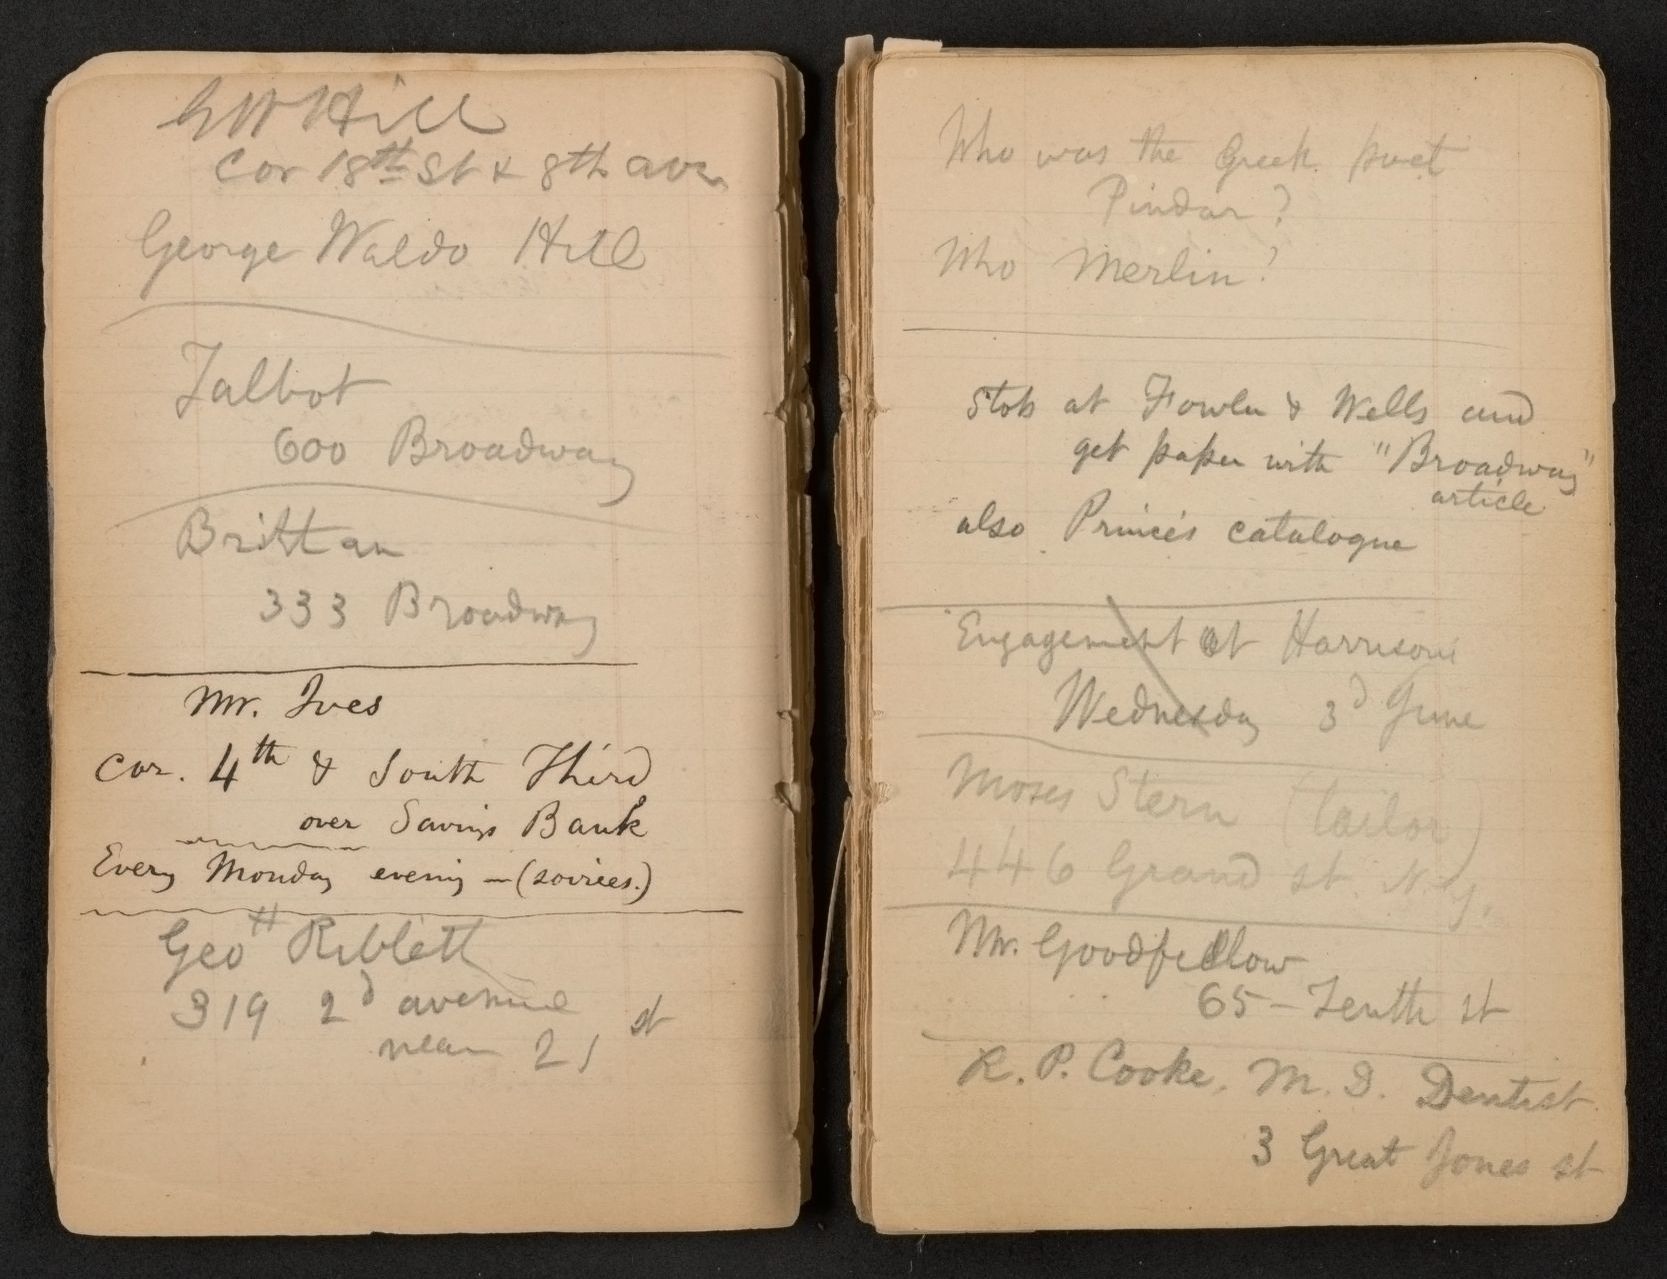 G W Hill
Cor 18th St & 8th ave
George Waldo Hill
Talbot
600 Broadway
Brittan
333 Broadway
Mr. Ives
cor. 4th & South Third
over Savings Bank
Every Monday evening — (soirees.)
Geo H Riblett
319 2d avenue
near 21 st
Who was the Greek poet
Pindar?
Who Merlin?
Stop at Fowler & Wells and
get paper with "Broadway"
article
also Prince's catalogue
Engagement at Harrisons
Wednesday 3d June
Moses Stern (tailor)
446 Grand st. N.Y.
Mr. Goodfellow
65 – Tenth st
R. P. Cooke, M. D. Dentist
3 Great Jones st